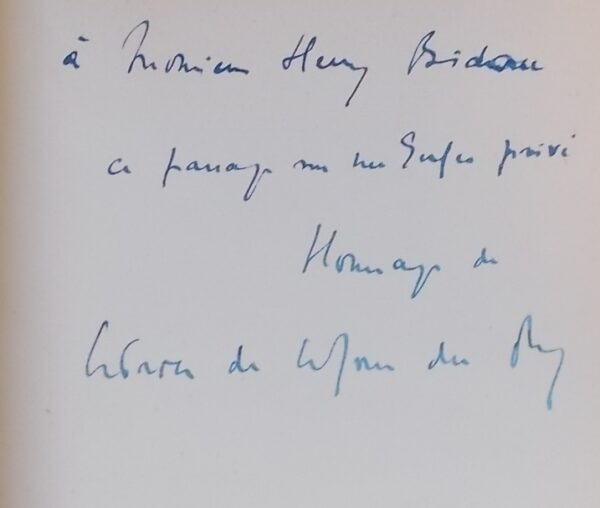 à Monsieur Henry Bidou
ce passage Enfer privé
Hommage de
Patrice de La Tour du Pin